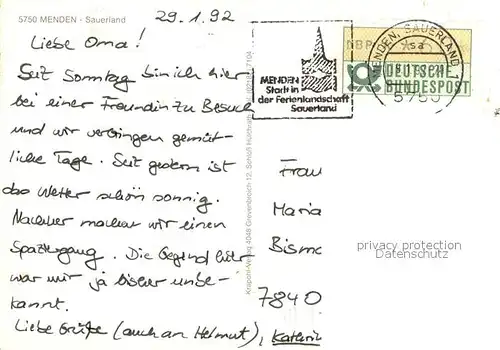 5750 MENDEN - Sauerland
29.1.92
Liebe Oma!
Seit Sonntag bin ich hier
bei einer Freundin zu Besuch
und wir verbringen gemüt-
liche Tage. Seit gestern ist
das Wetter schön sonnig.
Nachher machen wir einen
Spaziergang. Die Gegend hier
war mir ja bisher unbe-
kannt.
Liebe Grüße (auch an Helmut), Kathrin
Krapohl-Verlag 4048 Grevenbroich 12, Schloß Hülchrath
MENDEN
Stadt in
der Ferienlandschaft
Sauerland
MENDEN, SAUERLAND 1
5750
DEUTSCHE
BUNDESPOST
Frau
Maria
Bisma
7840
privacy protection
Datenschutz